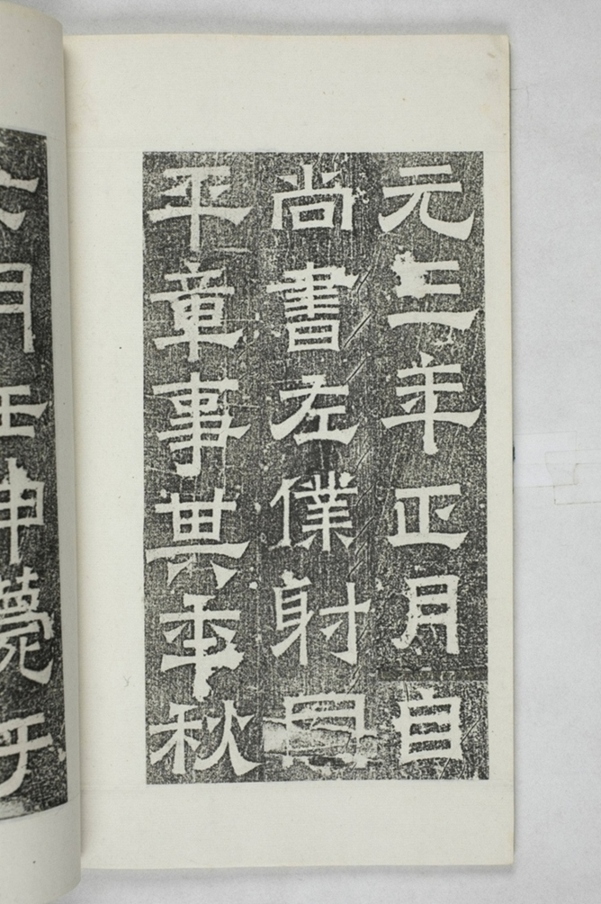 元三年正月自
尚書左僕射同
平章事其年秋
月壬申薨于